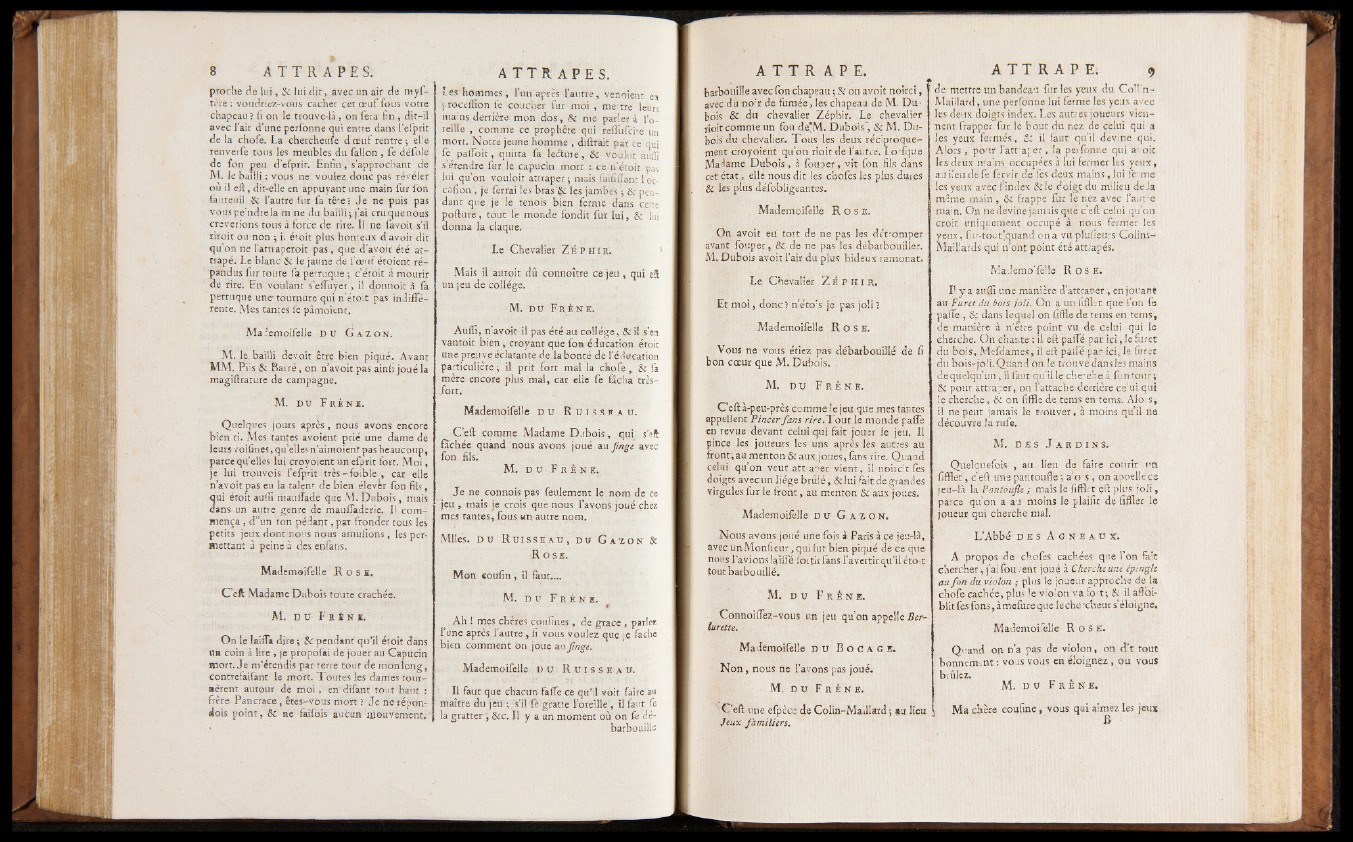 8 ATTRAPES.
proche de lui, & lui dit, avec un air de myſ-
tère : voudriez-vous cacher cet œuf ſous votre
chapeau ? ſi on le trouve-là, on ſera fin, dit-il
avec l'air d'une perſonne qui entre dans l'eſprit
de la choſe. La chercheuſe d'œuf rentre ; elle
renverſe tous les meubles du ſallon, ſe déſole
de ſon peu d'eſprit. Enfin, s'approchant de
M. le bailli : vous ne voulez donc pas révéler
où il eſt, dit-elle en appuyant une main ſur ſon
fauteuil & l'autre ſur ſa tête ? Je ne puis pas
vous peindre la mine du bailli ; j'ai cru que nous
creverions tous à force de rire. Il ne ſavoit s'il
riroit ou non ; il étoit plus honteux d'avoir dit
qu'on ne l'attraperoit pas, que d'avoir été at-
trapé. Le blanc & le jaune de l'œuf étoient ré-
pandus ſur toute ſa perruque ; c'étoit à mourir
de rire. En voulant s'eſſuyer, il donnoit à ſa
perruque une tournure qui n'étoit pas indiffé-
rente. Mes tantes ſe pâmoient.
Mademoiſelle DU GAZON.
M. le bailli devoit être bien piqué. Avant
MM. Piis & Barré, on n'avoit pas ainſi joué la
magiſtrature de campagne.
M. DU FRÊNE.
Quelques jours après, nous avons encore
bien ri. Mes tantes avoient prié une dame de
leurs voiſines, qu'elles n'aimoient pas beaucoup,
parce qu'elles lui croyoient un eſprit fort. Moi,
je lui trouvois l'eſprit très-foible, car elle
n'avoit pas eu la talent de bien élever ſon fils,
qui étoit auſſi mauſſade que M. Dubois, mais
dans un autre genre de mauſſaderie. Il com-
mença, d'un ton pédant, par fronder tous les
petits jeux dont nous nous amuſions, les per-
mettant à peine à des enfans.
Mademoiſelle ROSE.
C'eſt Madame Dubois toute crachée.
M. DU FRÊNE.
On le laiſſa dire ; & pendant qu'il étoit dans
un coin à lire, je propoſai de jouer au Capucin
mort. Je m'étendis par terre tout de mon long,
contrefaiſant le mort. Toutes les dames tour-
nèrent autour de moi, en diſant tout haut :
frère Pancrace, êtes-vous mort ? Je ne répon-
dois point, & ne faiſois aucun mouvement.
ATTRAPES.
Les hommes, l'un après l'autre, venoient en
proceſſion ſe coucher ſur moi, mettre leurs
mains derrière mon dos, & me parler à l'o-
reille, comme ce prophète qui reſſuſcite un
mort. Notre jeune homme, diſtrait par ce qui
ſe paſſoit, quitta ſa lecture, & voulut auſſi
s'étendre ſur le capucin mort : ce n'étoit pas
lui qu'on vouloit attraper ; mais ſaiſiſſant l'oc-
caſion, je ſerrai les bras & les jambes ; & pen-
dant que je le tenois bien ferme dans cette
poſture, tout le monde fondit ſur lui, & lui
donna la claque.
Le Chevalier ZÉPHIR.
Mais il auroit dû connoître ce jeu, qui eſt
un jeu de collége.
M. DU FRÊNE.
Auſſi, n'avoit il pas été au collége, & il s'en
vantoit bien, croyant que ſon éducation étoit
une preuve éclatante de la bonté de l'éducation
particulière ; il prit fort mal la choſe, & ſa
mère encore plus mal, car elle ſe fâcha très-
fort.
Mademoiſelle DU RUISSEAU.
C'eſt comme Madame Dubois, qui s'eſt
fâchée quand nous avons joué au ſinge avec
ſon fils.
M. DU FRÊNE.
Je ne connois pas ſeulement le nom de ce
jeu, mais je crois que nous l'avons joué chez
mes tantes, ſous un autre nom.
Mlles. DU RUISSEAU, DU GAZON &
ROSE.
Mon couſin, il faut....
M. DU FRÊNE.
Ah ! mes chères couſines, de grace, parlez
l'une après l'autre, ſi vous voulez que je ſache
bien comment on joue au ſinge.
Mademoiſelle DU RUISSEAU.
Il faut que chacun faſſe ce qu'il voit faire au
maître du jeu ; s'il ſe gratte l'oreille, il faut ſe
la gratter, &c. Il y a un moment où on ſe dé-
barbouille
ATTRAPE.
barbouille avec ſon chapeau ; & on avoit noirci,
avec du noir de fumée, les chapeau de M. Du-
bois & du chevalier Zéphir. Le chevalier
rioit comme un fou de M. Dubois, & M. Du-
bois du chevalier. Tous les deux réciproque-
ment croyoient qu'on rioit de l'autre. Lorſque
Madame Dubois, à ſouper, vit ſon fils dans
cet état, elle nous dit les choſes les plus dures
& les plus déſobligeantes.
Mademoiſelle ROSE.
On avoit eu tort de ne pas les détromper
avant ſouper, & de ne pas les débarbouiller.
M. Dubois avoit l'air du plus hideux ramonat.
Le Chevalier ZÉPHIR.
Et moi, donc ? n'étois je pas joli ?
Mademoiſelle ROSE.
Vous ne vous étiez pas débarbouillé de ſi
bon cœur que M. Dubois.
M. DU FRÊNE.
C'eſt à-peu-près comme le jeu que mes tantes
appellent Pincer ſans rire. Tout le monde paſſe
en revue devant celui qui fait jouer le jeu. Il
pince les joueurs les uns après les autres au
front, au menton & aux joues, ſans rire. Quand
celui qu'on veut attraper vient, il noircit ſes
doigts avec un liége brûlé, & lui fait de grandes
virgules ſur le front, au menton & aux joues.
Mademoiſelle DU GAZON.
Nous avons joué une fois à Paris à ce jeu-là,
avec un Monſieur, qui fut bien piqué de ce que
nous l'avions laiſſé ſortir ſans l'avertir qu'il étoit
tout barbouillé.
M. DU FRÊNE.
Connoiſſez-vous un jeu qu'on appelle Ber-
lurette.
Mademoiſelle DU BOCAGE.
Non, nous ne l'avons pas joué.
M. DU FRÊNE.
C'eſt une eſpèce de Colin-Maillard ; au lieu
Jeux familiers.
ATTRAPE. 9
de mettre un bandeau ſur les yeux du Colin-
Maillard, une perſonne lui ferme les yeux avec
les deux doigts index. Les autres joueurs vien-
nent frapper ſur le bout du nez de celui qui a
les yeux fermés, & il faut qu'il devine qui.
Alors, pour l'attraper, la perſonne qui avoit
les deux mains occupées à lui fermer les yeux,
au lieu de ſe ſervir de ſes deux mains, lui ferme
les yeux avec l'index & le doigt du milieu de la
même main, & frappe ſur le nez avec l'autre
main. On ne devine jamais que c'eſt celui qu'on
croit uniquement occupé à nous fermer les
yeux, ſur-tout quand on a vu pluſieurs Colins-
Maillards qui n'ont point été attrapés.
Mademoiſelle ROSE.
Il y a auſſi une manière d'attraper, en jouant
au Furet du bois joli. On a un ſifflet que l'on ſe
paſſe, & dans lequel on ſiffle de tems en tems,
de manière à n'être point vu de celui qui le
cherche. On chante : il eſt paſſé par ici, le furet
du bois, Meſdames, il eſt paſſé par ici, le furet
du bois-joli. Quand on le trouve dans les mains
de quelqu'un, il faut qu'il le cherche à ſon tour ;
& pour attraper, on l'attache derrière celui qui
le cherche, & on ſiffle de tems en tems. Alors,
il ne peut jamais le trouver, à moins qu'il ne
découvre la ruſe.
M. DES JARDINS.
Quelquefois, au lieu de faire courir un
ſifflet, c'eſt une pantoufle ; alors, on appelle ce
jeu-là la Pantoufle ; mais le ſifflet eſt plus joli,
parce qu'on a au moins le plaiſir de ſiffler le
joueur qui cherche mal.
L'Abbé DES AGNEAUX.
A propos de choſes cachées que l'on fait
chercher, j'ai ſouvent joué à Cherche une épingle
au ſon du violon ; plus le joueur approche de la
choſe cachée, plus le violon va fort ; & il affoi-
blit ſes ſons, à meſure que le chercheur s'éloigne.
Mademoiſelle ROSE.
Quand on n'a pas de violon, on dit tout
bonnement : vous vous en éloignez, ou vous
brûlez.
M. DU FRÊNE.
Ma chère couſine, vous qui aimez les jeux
B